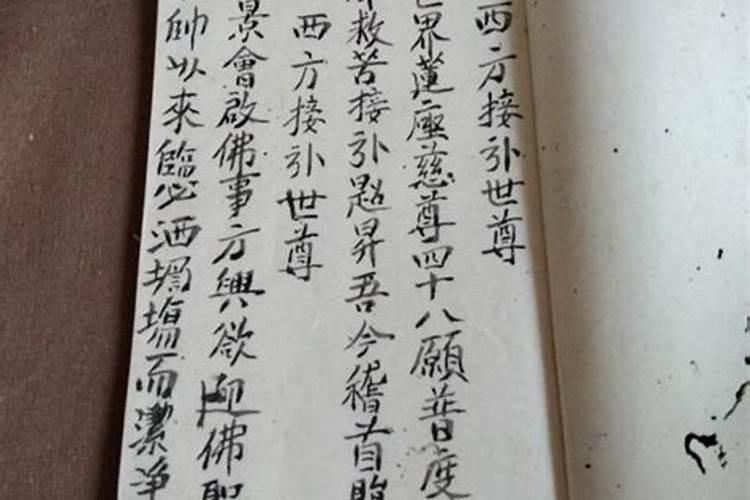 西方接引世尊
世界蓮座慈尊四十八願普度
救苦接引超昇吾今稽首
西方接引世尊
景會啟佛事方興欲迎佛聖
帥以來臨必洒壇塲而潔淨